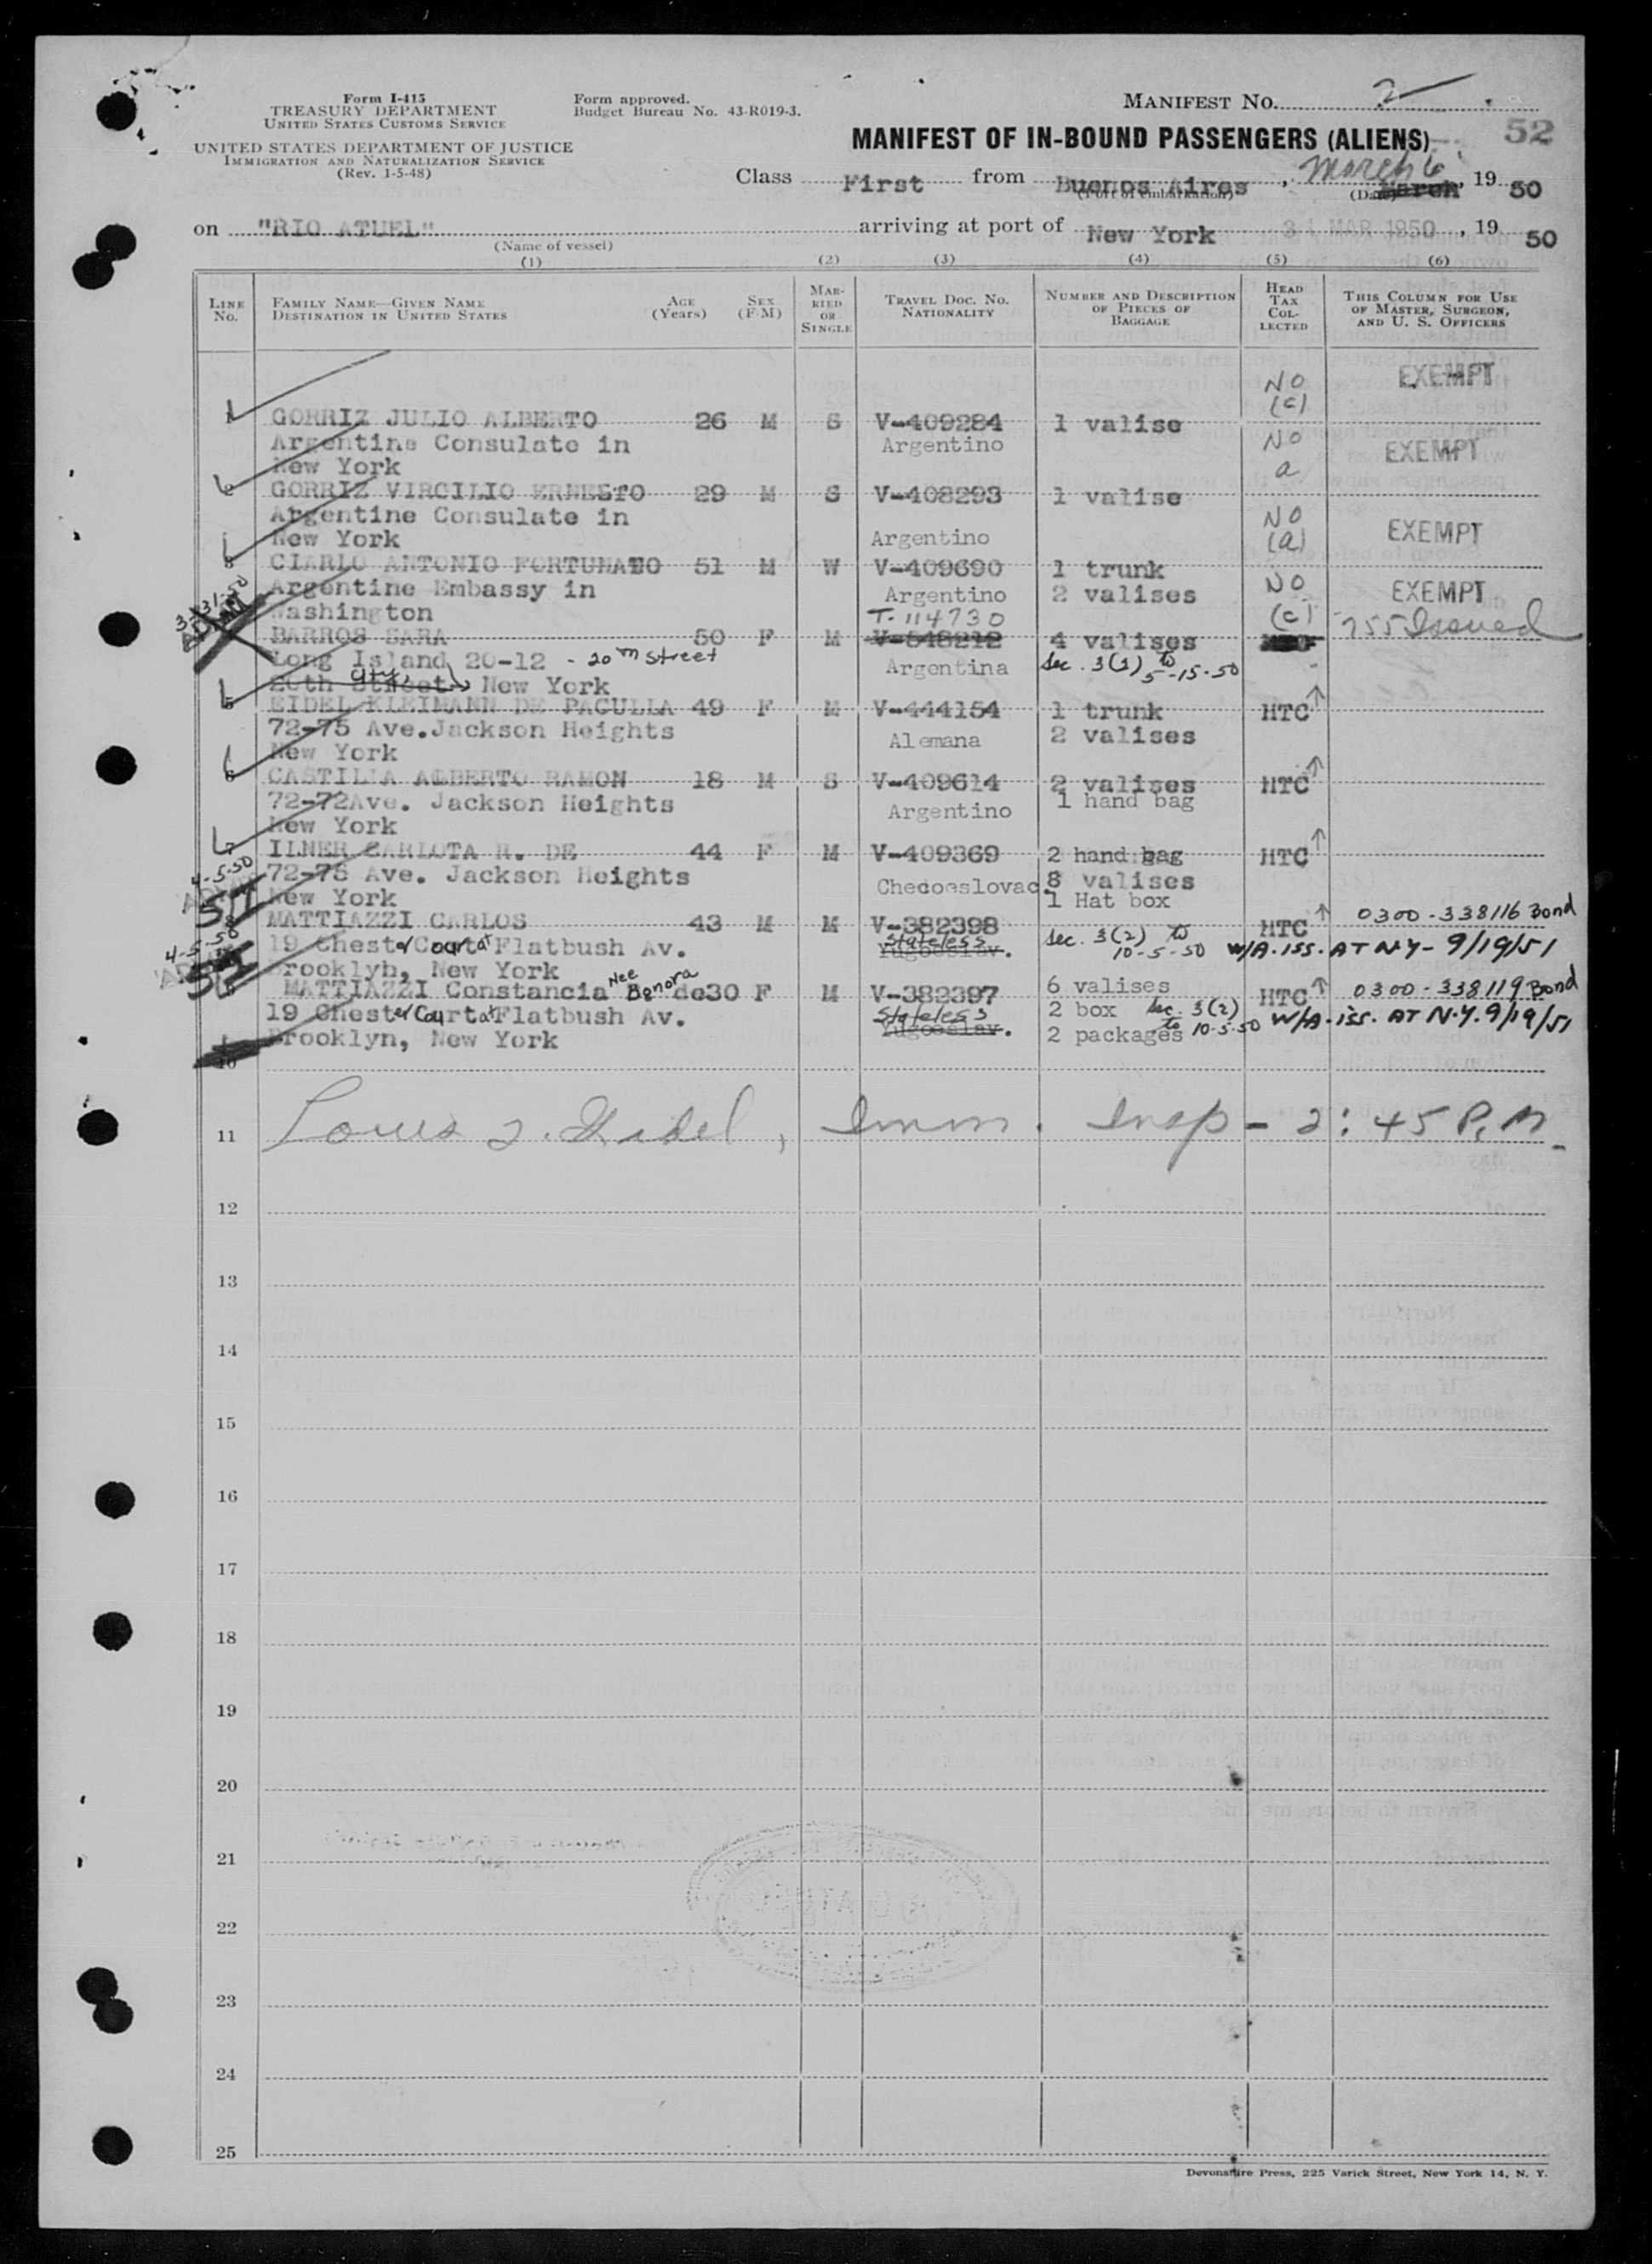 Form I-415
TREASURY DEPARTMENT
UNITED STATES CUSTOMS SERVICE
UNITED STATES DEPARTMENT OF JUSTICE
IMMIGRATION AND NATURALIZATION SERVICE
(Rev. 1-5-48)
Form approved.
Budget Bureau No. 43-R019-3.
MANIFEST NO. 2
MANIFEST OF IN-BOUND PASSENGERS (ALIENS) 52
Class First from Buenos Aires, March 6, 19 50
(Port of embarkation) (Date) March
on "RIO ATUEL" arriving at port of New York 31 MAR 1950, 19 50
(Name of vessel)
(1) (2) (3) (4) (5) (6)
LINE NO. FAMILY NAME—GIVEN NAME DESTINATION IN UNITED STATES AGE (Years) SEX (F-M) MARRIED OR SINGLE TRAVEL DOC. NO. NATIONALITY NUMBER AND DESCRIPTION OF PIECES OF BAGGAGE HEAD TAX COLLECTED THIS COLUMN FOR USE OF MASTER, SURGEON, AND U. S. OFFICERS
NO (c) EXEMPT
1 GORRIZ JULIO ALBERTO 26 M S V-409284 1 valise
Argentine Consulate in Argentino NO EXEMPT
New York a
2 GORRIZ VIRCILIO ERNESTO 29 M S V-408293 1 valise
Argentine Consulate in NO
New York Argentino (a) EXEMPT
3 CIARLO ANTONIO FORTUNATO 51 M W V-409690 1 trunk
3-31-50 Argentine Embassy in Argentino 2 valises NO EXEMPT
Washington T-114730 (c) 755 Issued
BARROS SARA 50 F M V-548212 4 valises
Long Island 20-12 - 20th Street Argentina Sec. 3(2) to 5-15-50
20th Street City, New York
5 EIDEL KLEIMANN DE PACULLA 49 F M V-444154 1 trunk HTC
72-75 Ave. Jackson Heights Alemana 2 valises
New York
6 CASTILLA ALBERTO RAMON 18 M S V-409614 2 valises HTC
72-72Ave. Jackson Heights Argentino 1 hand bag
New York
7 ILNER CARLOTA R. DE 44 F M V-409369 2 hand bag HTC
4-5-50 72-75 Ave. Jackson Heights Checoeslovac. 8 valises
SI New York 1 Hat box
8 MATTIAZZI CARLOS 43 M M V-382398 HTC 0300-338116 Bond
4-5-50 19 Chester Court at Flatbush Av. Stateless Yugoeslav. Sec. 3(2) to 10-5-50 W/A. iss. AT NY- 9/19/51
SI Brooklyb, New York
MATTIAZZI Constancia Nee Bonora de 30 F M V-382397 6 valises HTC 0300-338119 Bond
19 Chester Court at Flatbush Av. Stateless Yugoeslav. 2 box Sec. 3(2) to 10-5-50 W/A. iss. AT N.Y. 9/19/51
Brooklyn, New York 2 packages
10
11 Imm. Insp - 2:45 P.M.
12
13
14
15
16
17
18
19
20
21
22
23
24
25
Devonshire Press, 225 Varick Street, New York 14, N. Y.